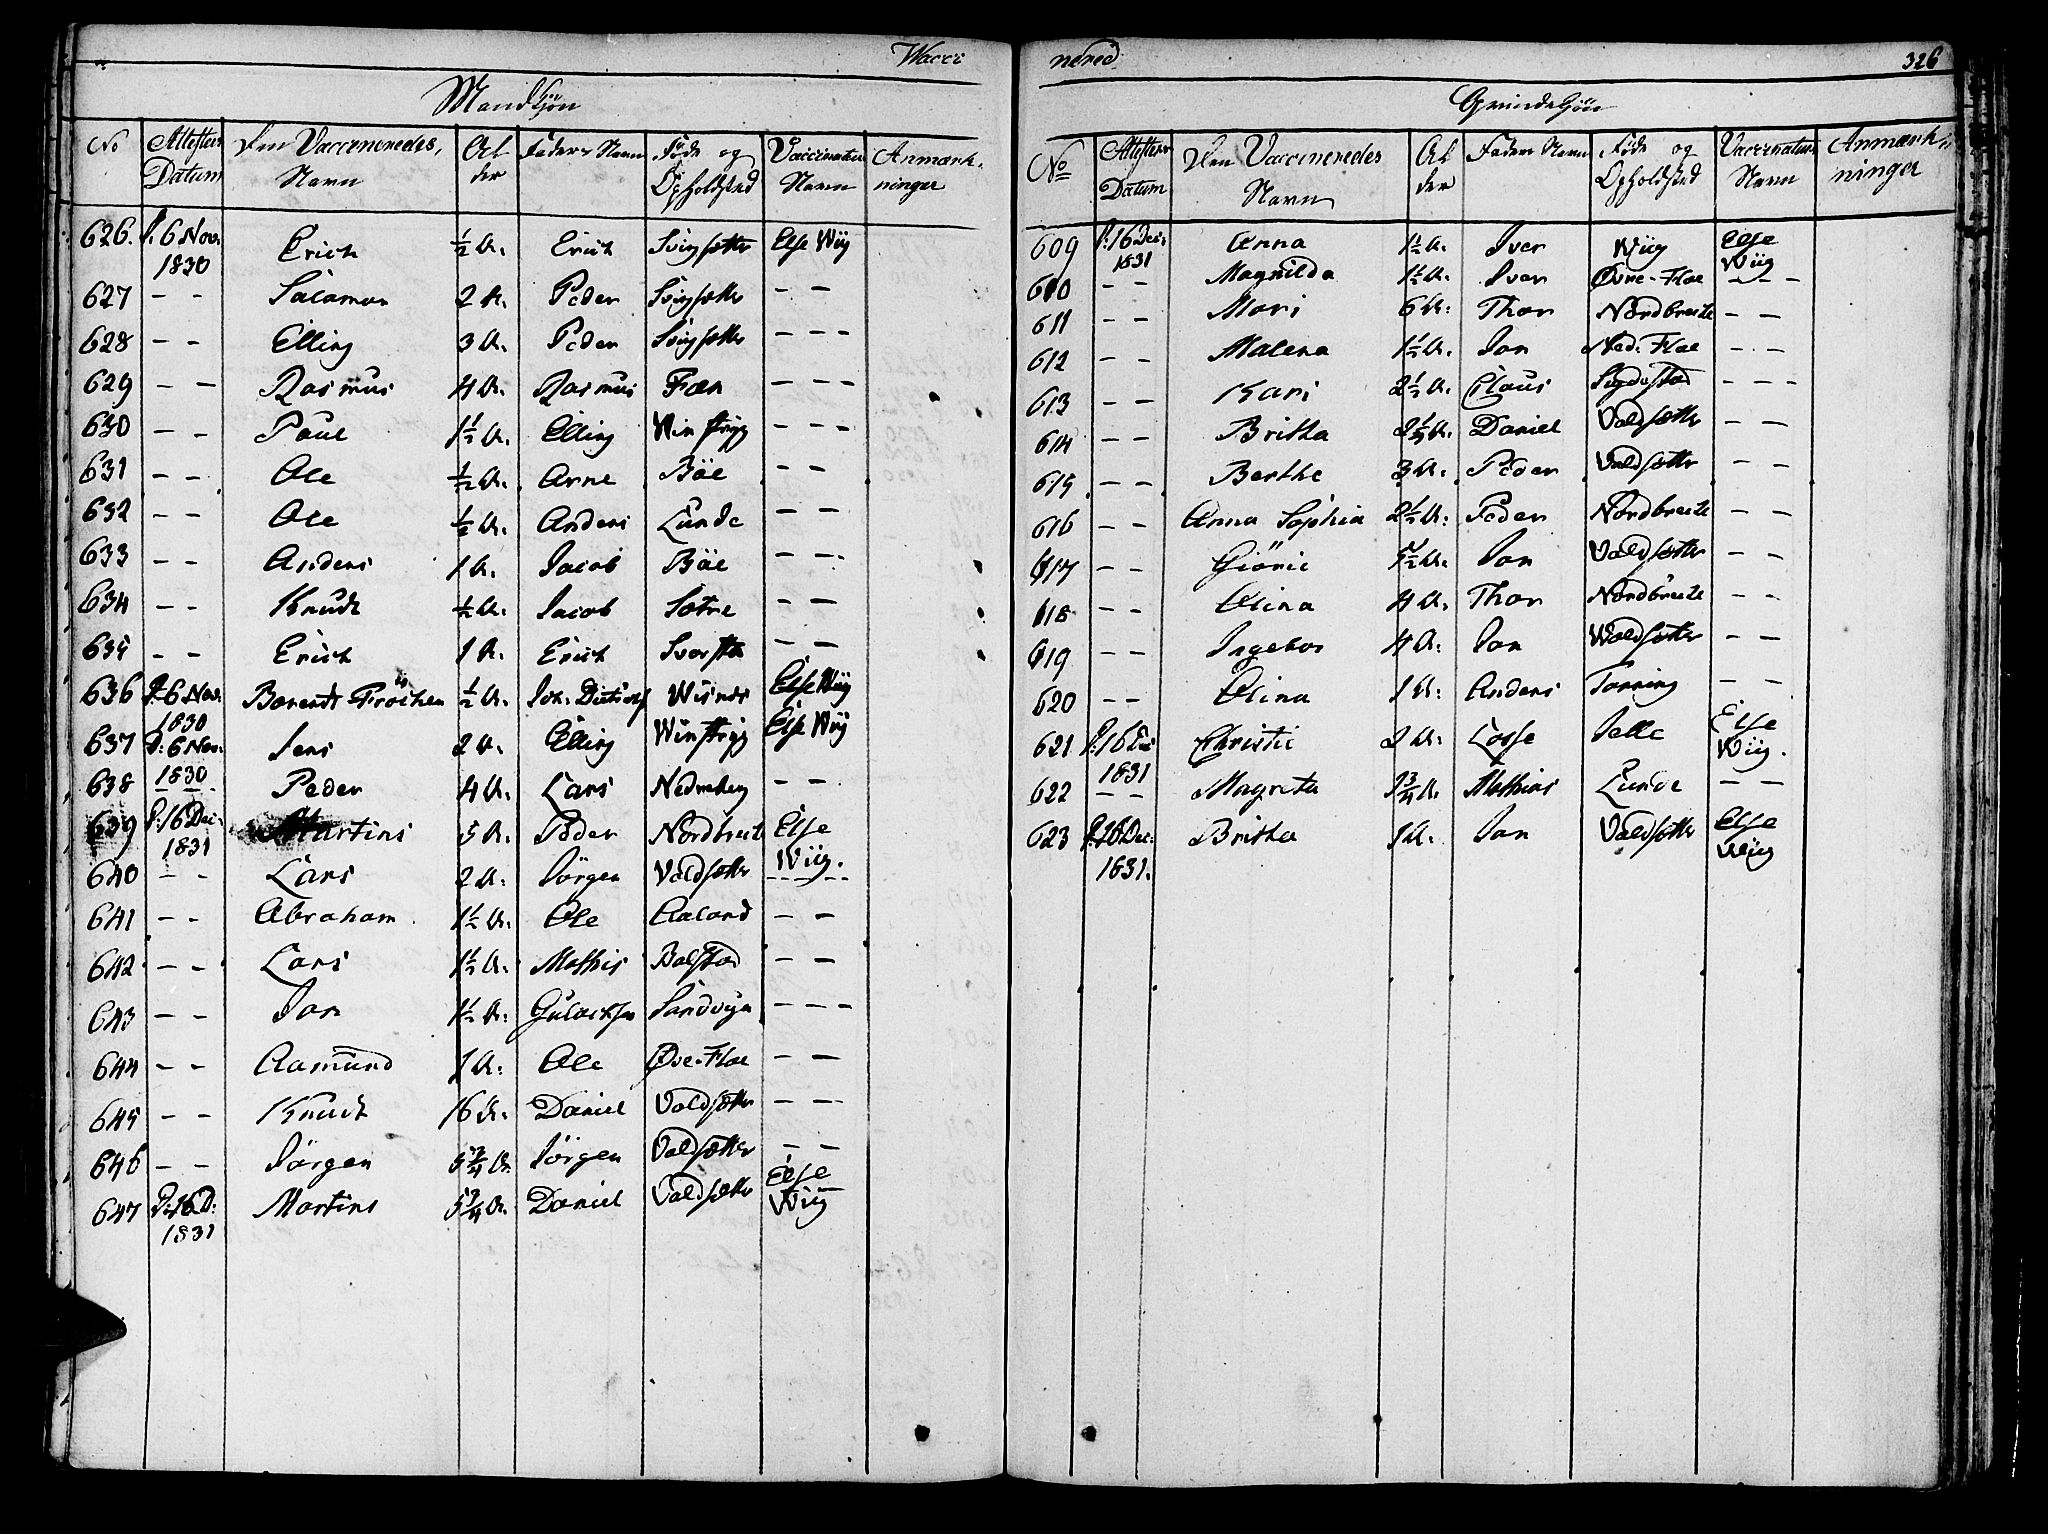 Vacci
Mandkjøn
No Attestens Datum Den Vaccineredes Navn Alder Faders Navn Føde og Opholdsted Vaccinateurs Navn Anmærkninger
626. d: 6 Nov. 1830 Erich ½ A. Erich Svingsætter Else Wiig
627 - - Salamon 2 A. Peder Svingsætter - -
628 - - Elling 3 A. Peder Svingsætter - - -
629 - - Rasmus 4 A. Rasmus Fæn - - -
630 - - Paul 1½ A. Elling - - -
631 - - Ole ½ A. Arne Böe - -
632 - - Ole ½ A. Anders Lunde - -
633 - - Anders 1 A. Jacob Böe - -
634 - - Knudt ½ A. Jacob Sætre - -
635 - - Erich 1 A. Erich - -
636 d: 6 Nov. 1830 Berendt ½ A. Joh. Wisnes Else Wiig
637 d: 6 Nov. 1830 Jens 2 A. Elling Else Wiig
638 - - - Peder 4 A. Lars Nedreberg - -
639 d: 16 Dec: 1831 Martins 5 A. Peder Nordbreit Else Wiig.
640 - - Lars 2 A. Jörgen Valdsætter - - - -
641 - - Abraham 1½ A. Ole Aaland - -
642 - - Lars 1½ A. Mathis Bolstad - -
643 - - Jon 1½ A. Sandvign - - -
644 - - Aamund 1 A. Ole Øvre-Floe - -
645 - - Knudt 16 A. Daniel Valdsætter - - -
646 - - Jörgen 5¾ A. Jörgen Valdsætter - -
647 d: 16 D: 1831 Martins 5¾ A. Daniel Valdsætter Else Wiig
nered 326
Qvindekjön
No Attestens Datum Den Vaccineredes Navn Alder Faders Navn Føde og Opholdsted Vaccinateurs Navn Anmærkninger
609 d: 16 Dec. 1831 Anna 1½ A. Iver Wiig Else Wiig
610 - - Magnilda 1½ A. Iver Øvre-Floe - - -
611 - - Mari 6 A. Thor Nordbreite - -
612 - - Malena 1½ A. Jon Ned: Floe - -
613 - - Kari 2½ A. Claus - - -
614 - - Britha 2¼ A. Daniel Valdsætter - -
615 - - Berthe 3 A. Peder Valdsætter - -
616 - - Anna Sophia 2½ A. Peder Nordbreite - -
617 - - Giörie Jon Valdsætter - -
618 - - Olina 4 A. Thor Nordbreite - -
619 - - Ingebor 4 A. Jon Valdsætter - -
620 - - Olina 1 A. Anders Tonning - -
621 d: 16 Dec 1831 Christie 2 A. Lasse Else Wiig.
622 - - Magreta 1¾ A. Mathias Lunde - -
623 d: 16 Dec: 1831. Britha 1 A. Jon Valdsætter Else Wiig